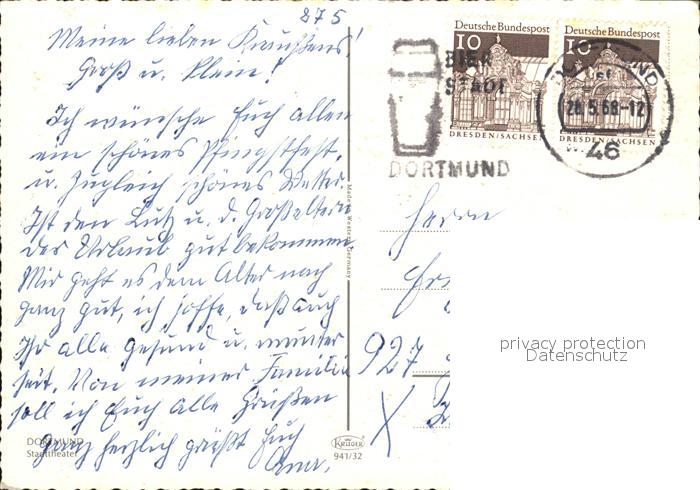 275
Meine lieben Kraußens!
Groß u. Klein!
Ich wünsche Euch allen
ein schönes Pfingstfest,
u. zugleich schönes Wetter.
Ist den Lutz u. d. Großeltern
der Urlaub gut bekommen
Mir geht es dem Alter nach
ganz gut, ich hoffe, daß auch
Ihr alle gesund u. munter
seit. Von meiner Familie
soll ich Euch alle Grüßen
ganz herzlich grüßt Euch
Anna.
DORTMUND
Stadttheater
Made in Western Germany
KRÜGER
941/32
Deutsche Bundespost
10
DRESDEN/SACHSEN
Deutsche Bundespost
10
DRESDEN/SACHSEN
BIER
STADT
DORTMUND
28.5.68-12
46
Herrn
927
X
privacy protection
Datenschutz